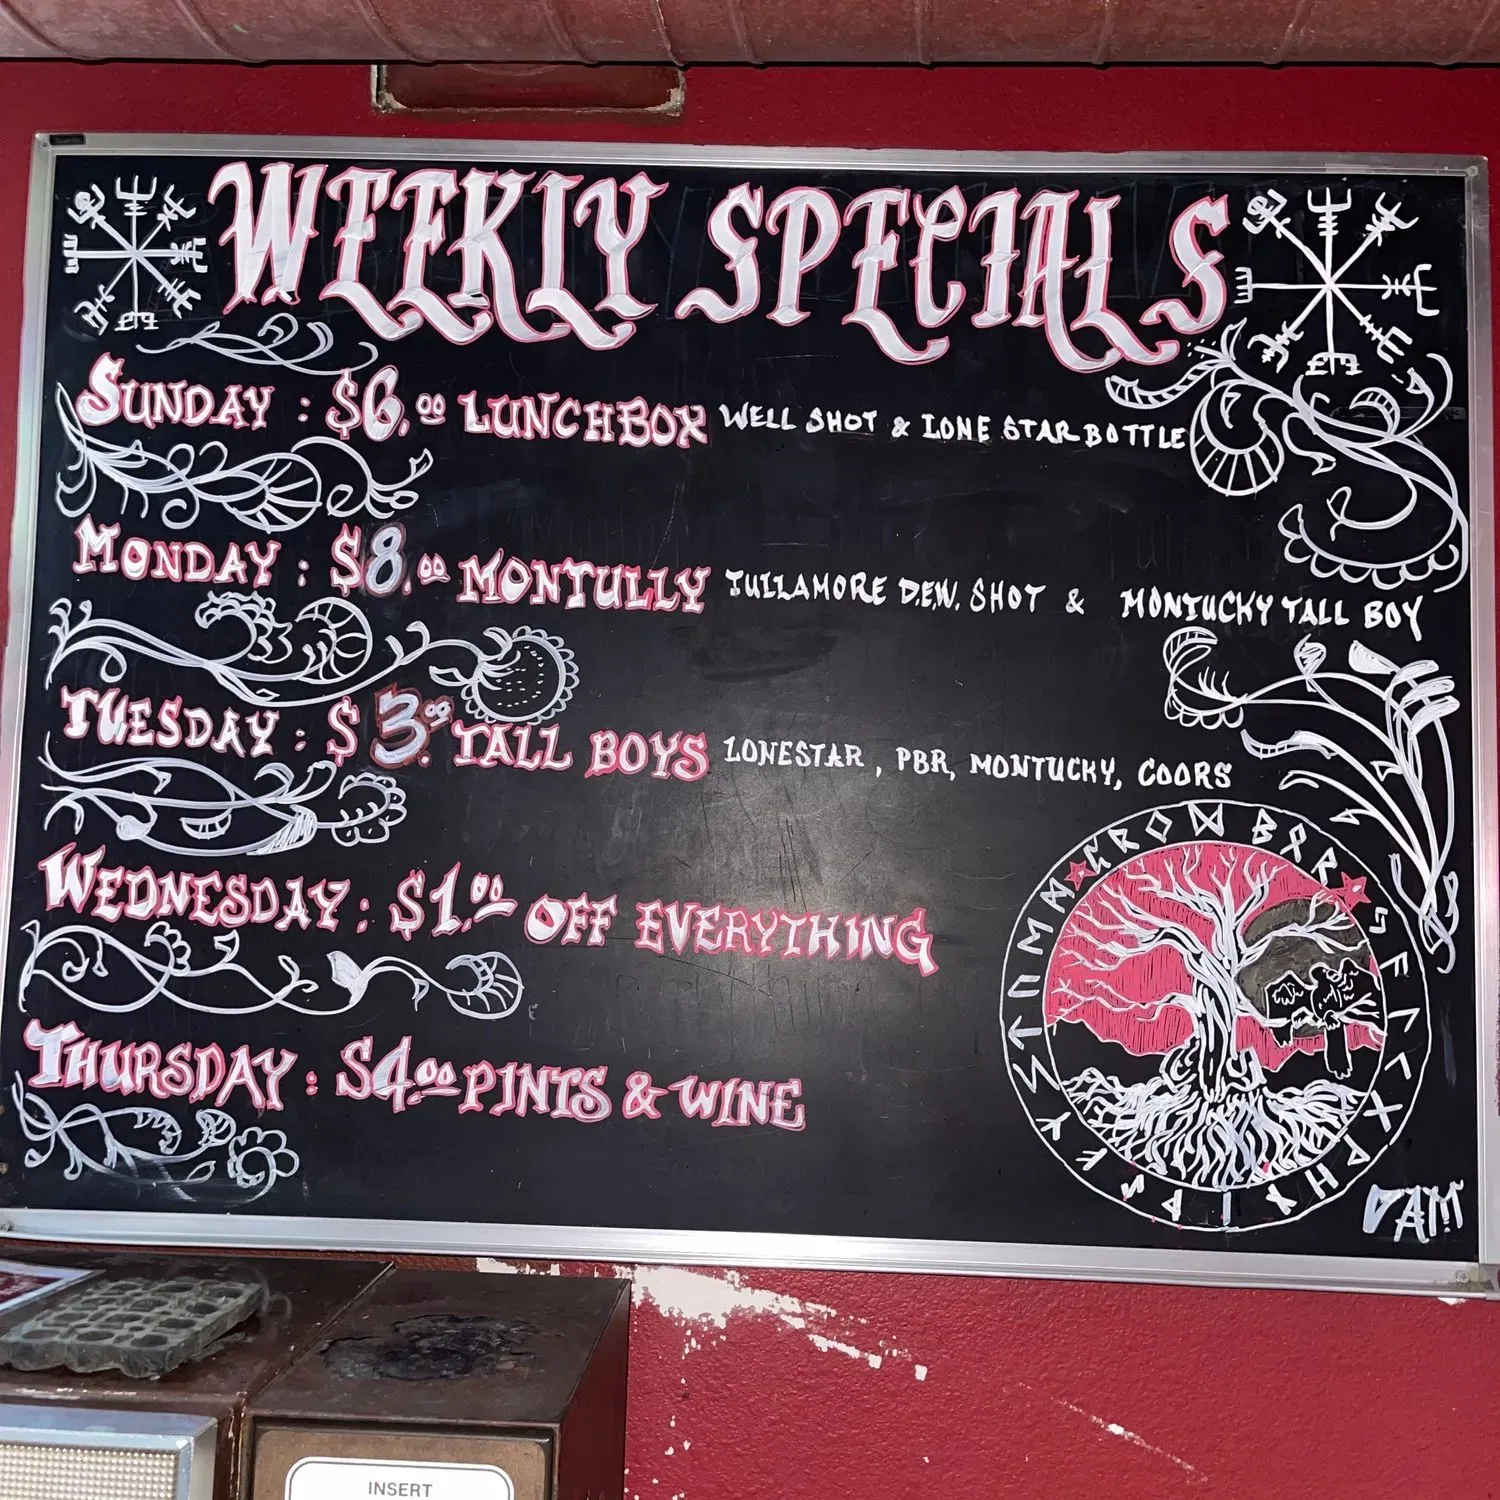 WEEKLY SPECIALS
SUNDAY : $6.00 LUNCHBOX WELL SHOT & LONE STAR BOTTLE
MONDAY : $8.00 MONTULLY TULLAMORE D.E.W. SHOT & MONTUCKY TALL BOY
TUESDAY : $3.00 TALL BOYS LONESTAR, PBR, MONTUCKY, COORS
WEDNESDAY : $1.00 OFF EVERYTHING
THURSDAY : $4.00 PINTS & WINE
DAM
INSERT